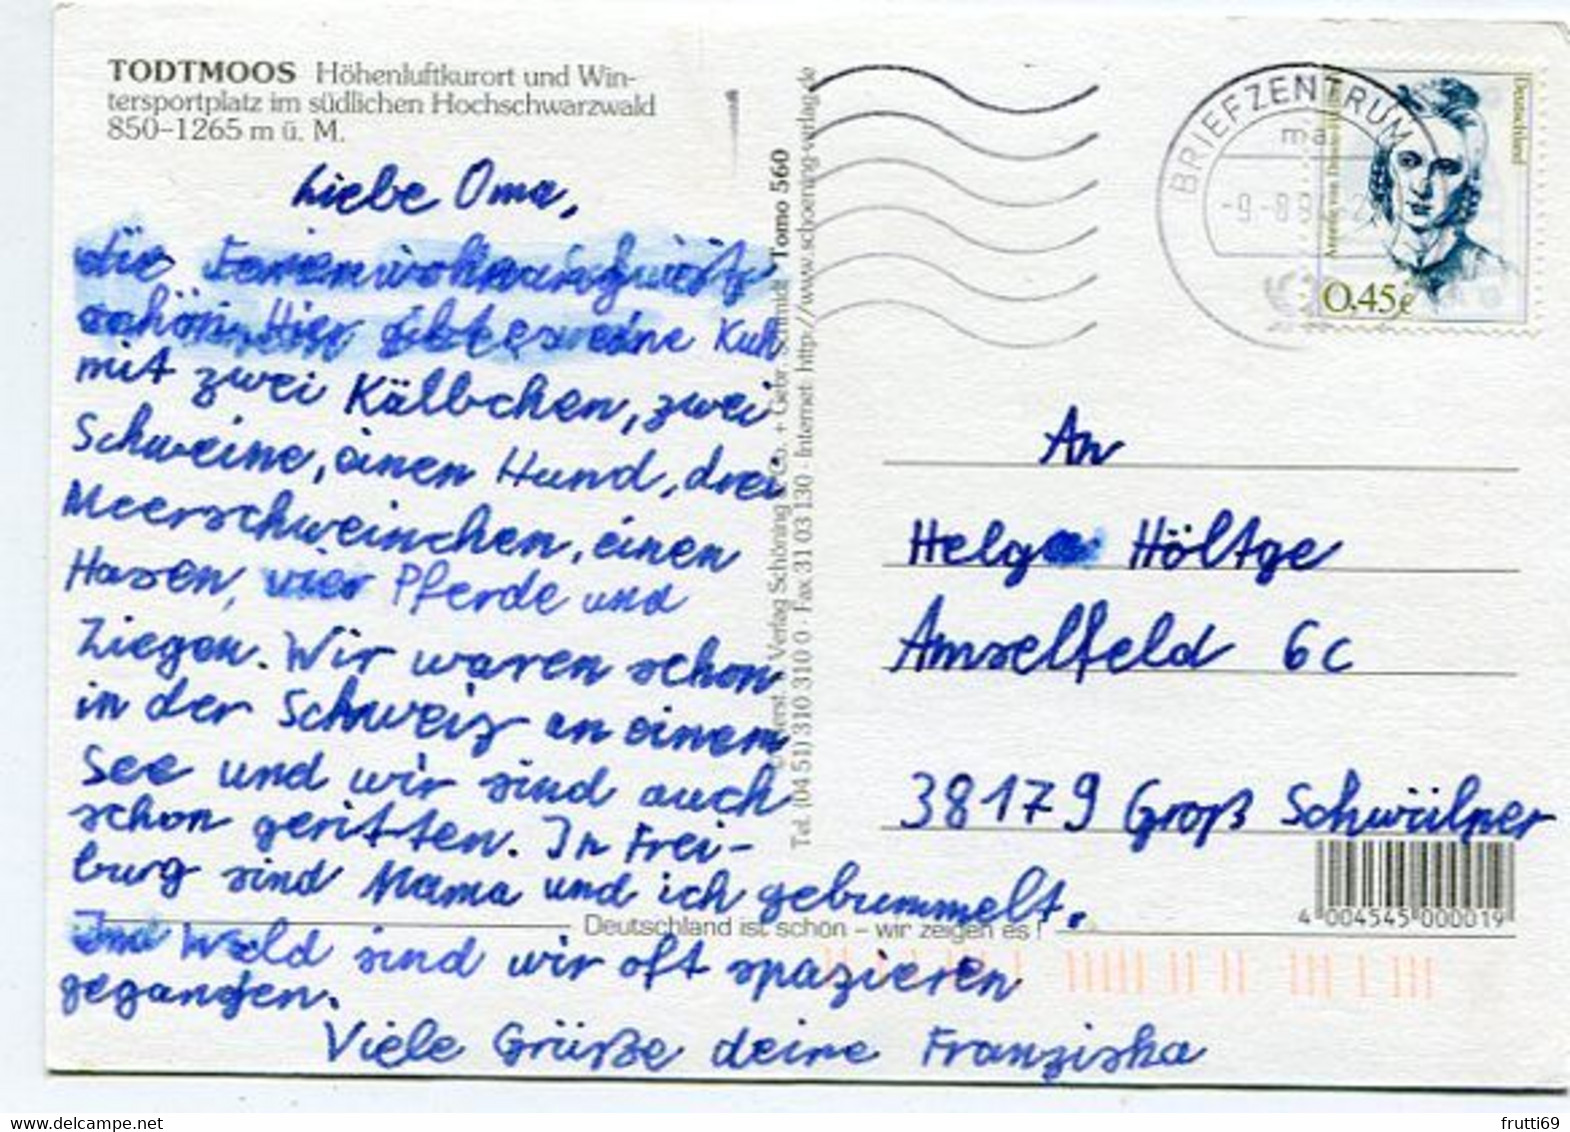 TODTMOOS Höhenluftkurort und Win-
tersportplatz im südlichen Hochschwarzwald
850-1265 m ü. M.
Liebe Oma,
die Ferienwohnung ist
schön. Hier gibt es eine Kuh
mit zwei Kälbchen, zwei
Schweine, einen Hund, drei
Meerschweinchen, einen
Hasen, vier Pferde und
Ziegen. Wir waren schon
in der Schweiz an einem
See und wir sind auch
schon geritten. In Frei-
burg sind Mama und ich gebummelt.
Im Wald sind wir oft spazieren
gegangen.
Viele Grüße deine Franziska
Verlag Schöning & Co. + Gebr. Schmidt Tomo 560
Tel. (04 51) 310 310 0 · Fax 31 03 130 · Internet: http://www.schoening-verlag.de
Deutschland ist schön – wir zeigen es!
BRIEFZENTRUM
ma
Deutschland
0.45€
An
Helga Höltge
Amselfeld 6c
38179 Groß Schwülper
4 004545 000019
www.delcampe.net
frutti69